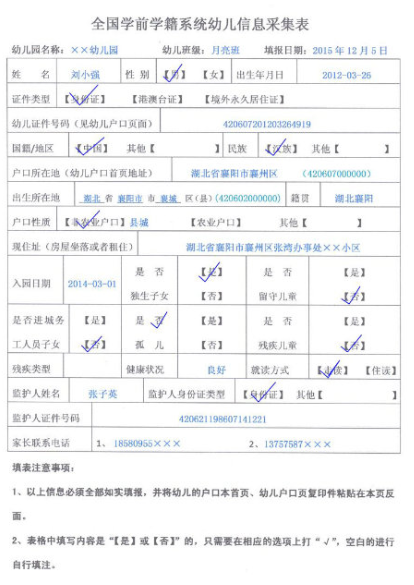 全国学前学籍系统幼儿信息采集表
幼儿园名称:××幼儿园 幼儿班级:月亮班 填报日期:2015年12月5日
姓 名 刘小强 性 别 【男】 【女】 出生年月日 2012-03-26
证件类型 【身份证】 【港澳台证】 【境外永久居住证】
幼儿证件号码(见幼儿户口页面) 420607201203264919
国籍/地区 【中国】 其他【 】 民族 【汉族】 其他【 】
户口所在地(幼儿户口首页地址) 湖北省襄阳市襄州区 (420607000000)
出生所在地 湖北 省 襄阳市 市 襄城 区(县)(420602000000) 籍贯 湖北襄阳
户口性质 【非农业户口】县城 【农业户口】 其他【 】
现住址(房屋坐落或者租住) 湖北省襄阳市襄州区张湾办事处××小区
入园日期 2014-03-01 是 否 独生子女 【是】 【否】 是 否 留守儿童 【是】 【否】
是否进城务工人员子女 【是】 【否】 是 否 孤 儿 【是】 【否】 是 否 残疾儿童 【是】 【否】
残疾类型 健康状况 良好 就读方式 【走读】 【住读】
监护人姓名 张子英 监护人身份证类型 【身份证】 其他【 】
监护人证件号码 420621198607141221
家长联系电话 1、 18580955××× 2、13757587×××
填表注意事项:
1、以上信息必须全部如实填报,并将幼儿的户口本首页、幼儿户口页复印件粘贴在本页反
面。
2、表格中填写内容是“【是】或【否】”的,只需要在相应的选项上打“√”,空白的进行
自行填注。